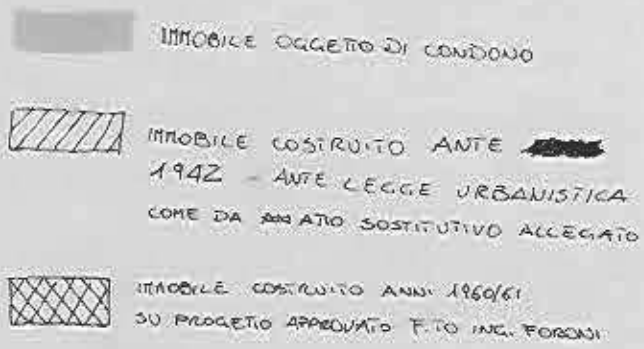 IMMOBILE OGGETTO DI CONDONO
IMMOBILE COSTRUITO ANTE
1942 - ANTE LEGGE URBANISTICA
COME DA ATTO SOSTITUTIVO ALLEGATO
IMMOBILE COSTRUITO ANNI 1960/61
SU PROGETTO APPROVATO F.TO ING. FORONI